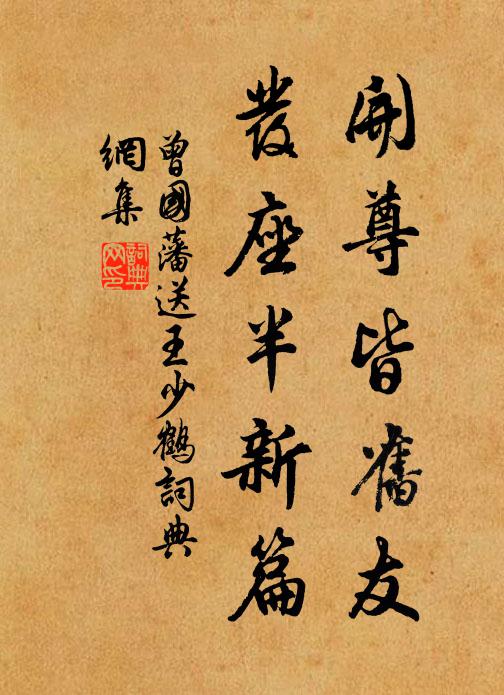 開尊皆舊友
發座半新篇
曾國藩送王少鶴詞典
網集
詞典
网印